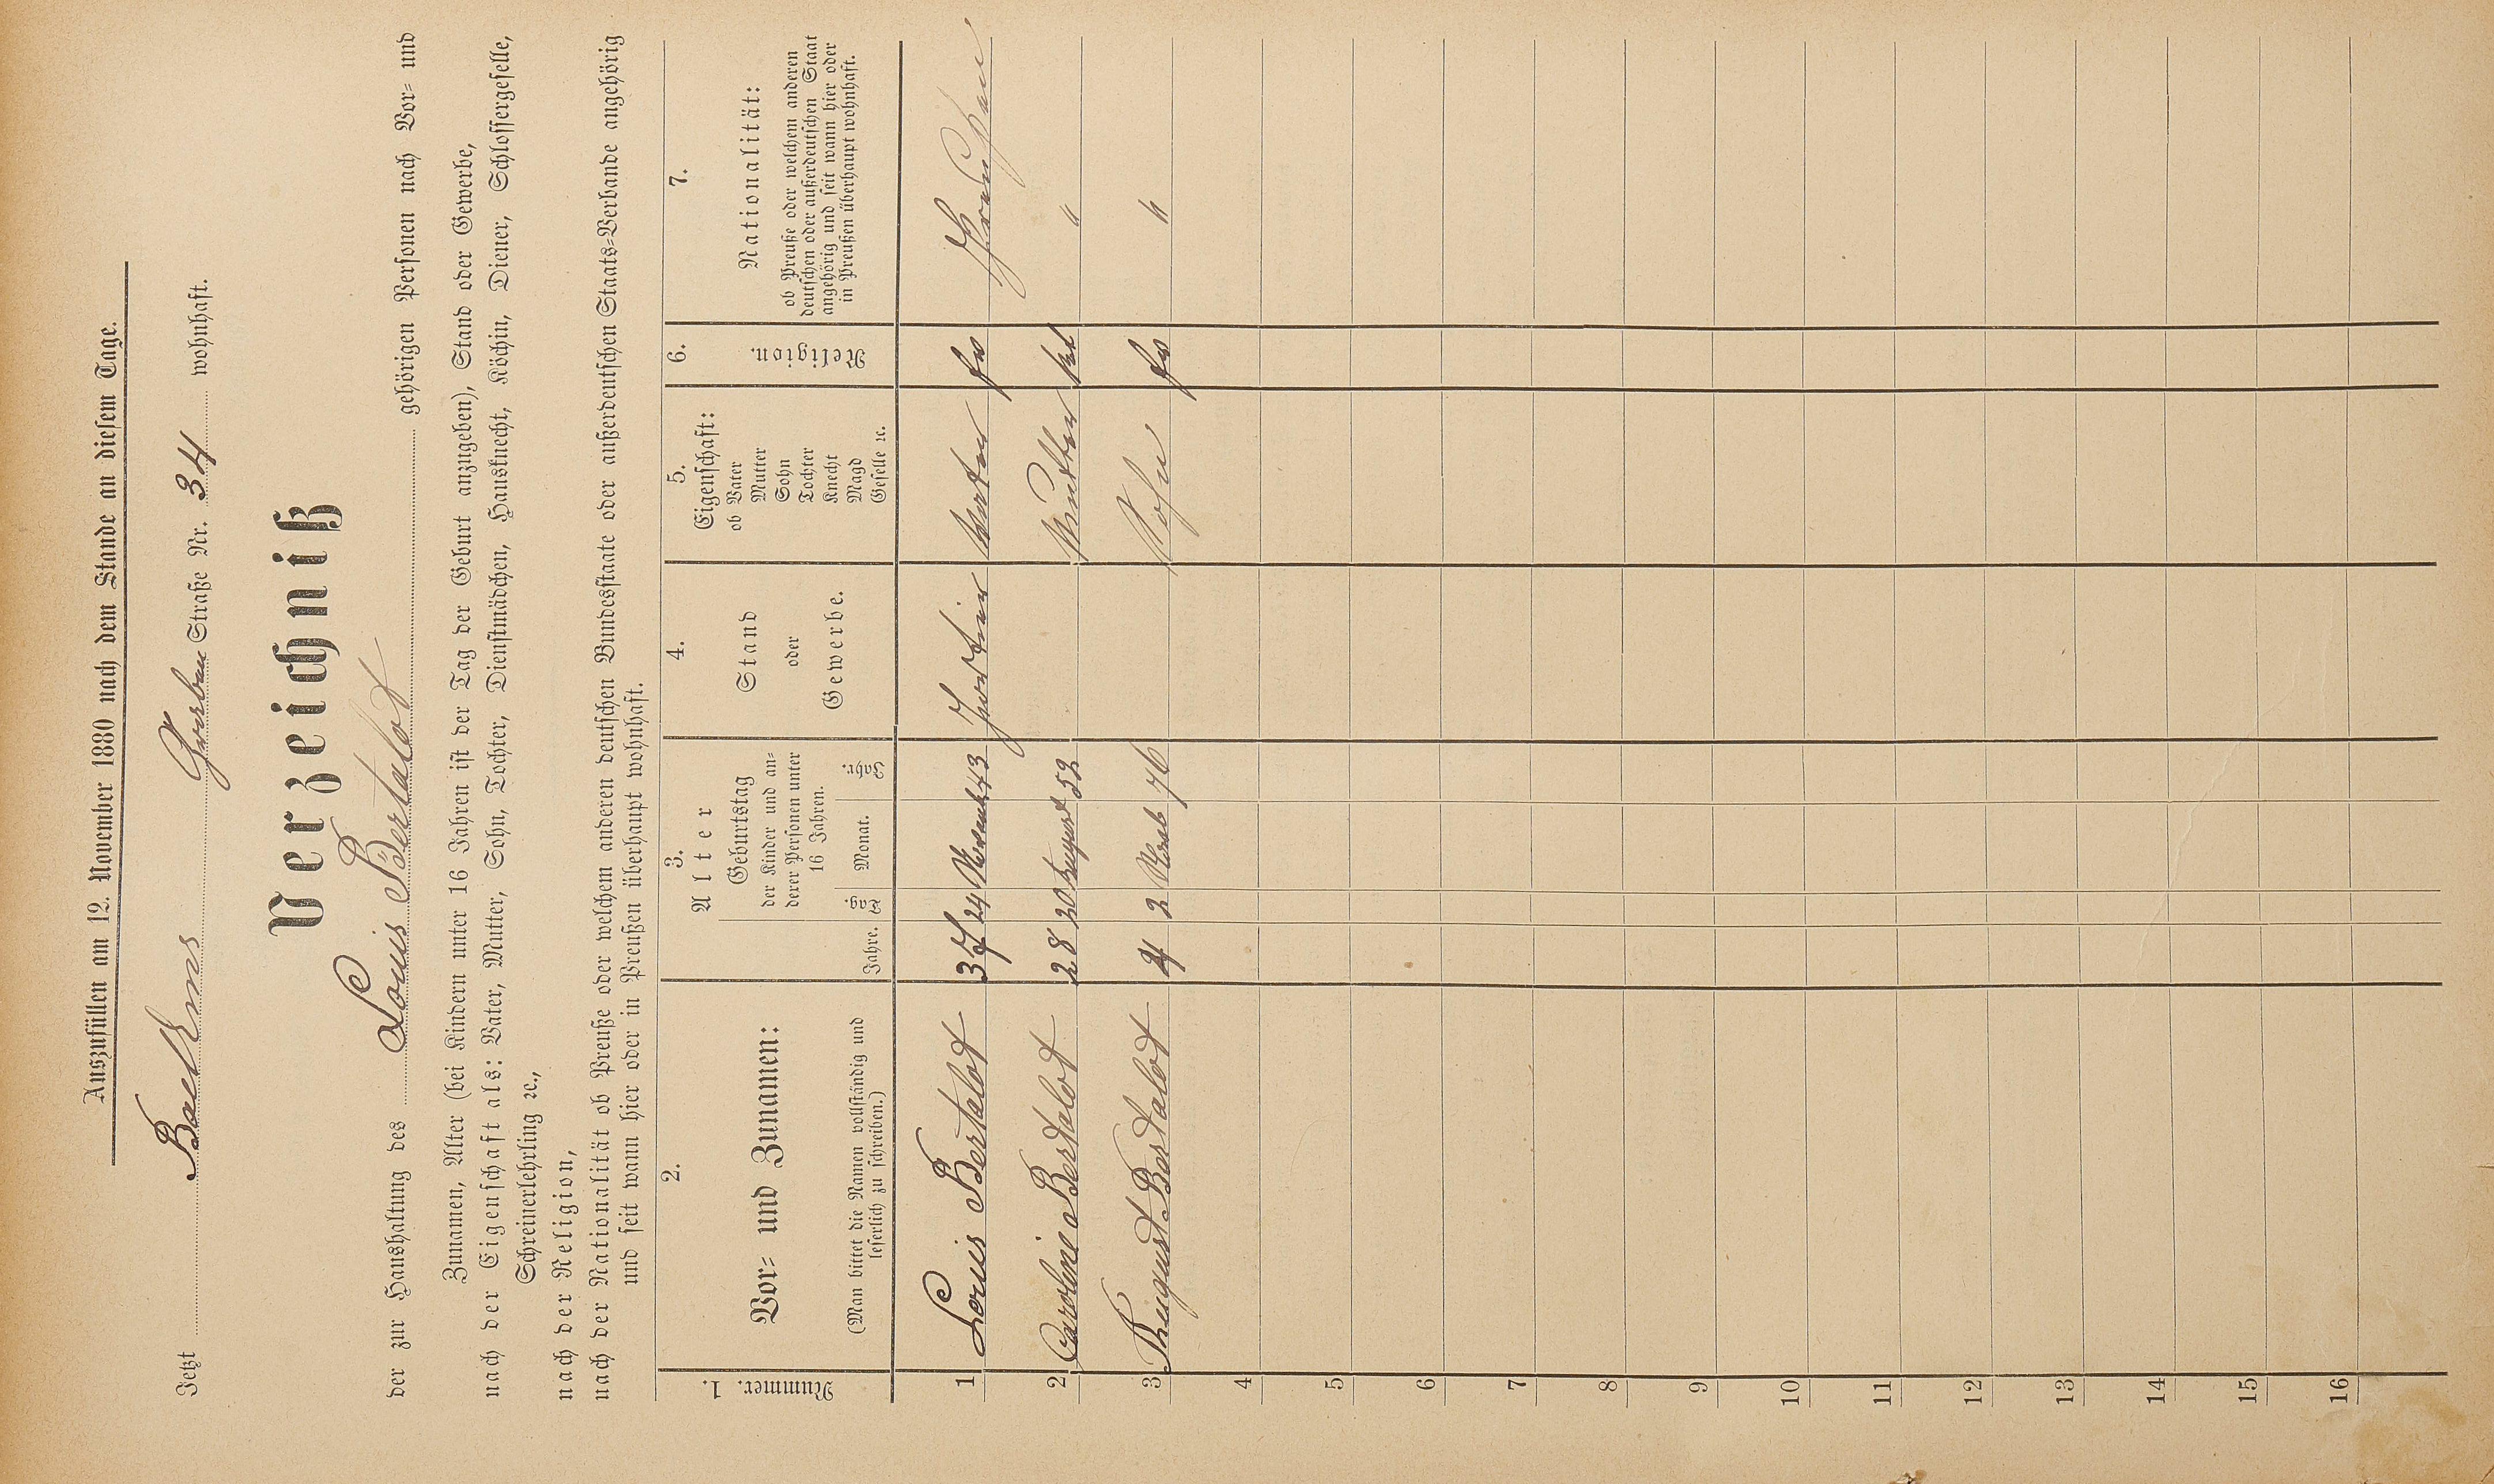 Auszufüllen am 12. November 1880 nach dem Stande an diesem Tage.
Jetzt Bad Ems Straße Nr. 34 wohnhaft.
Verzeichniß
der zur Haushaltung des Louis Bertalot gehörigen Personen nach Vor- und
Zunamen, Alter (bei Kindern unter 16 Jahren ist der Tag der Geburt anzugeben), Stand oder Gewerbe,
nach der Eigenschaft als: Vater, Mutter, Sohn, Tochter, Dienstmädchen, Hausknecht, Köchin, Diener, Schlossergeselle,
Schreinerlehrling ꝛc.,
nach der Religion,
nach der Nationalität ob Preuße oder welchem anderen deutschen Bundesstaate oder außerdeutschen Staats-Verbande angehörig
und seit wann hier oder in Preußen überhaupt wohnhaft.
1. Nummer.
2.
Vor- und Zunamen:
(Man bittet die Namen vollständig und
leserlich zu schreiben.)
3.
Alter
Jahre.
Geburtstag
der Kinder und an-
derer Personen unter
16 Jahren.
Tag. Monat. Jahr.
4.
Stand
oder
Gewerbe.
5.
Eigenschaft:
ob Vater
Mutter
Sohn
Tochter
Knecht
Magd
Geselle ꝛc.
6.
Religion.
7.
Nationalität:
ob Preuße oder welchem anderen
deutschen oder außerdeutschen Staat
angehörig und seit wann hier oder
in Preußen überhaupt wohnhaft.
1 Louis Bertalot 37 24 43 Portier Vater ev Preußen
2 Caroline Bertalot 28 20 August 52 Mutter "
3 August Bertalot 4 2 76 Sohn ev "
4
5
6
7
8
9
10
11
12
13
14
15
16